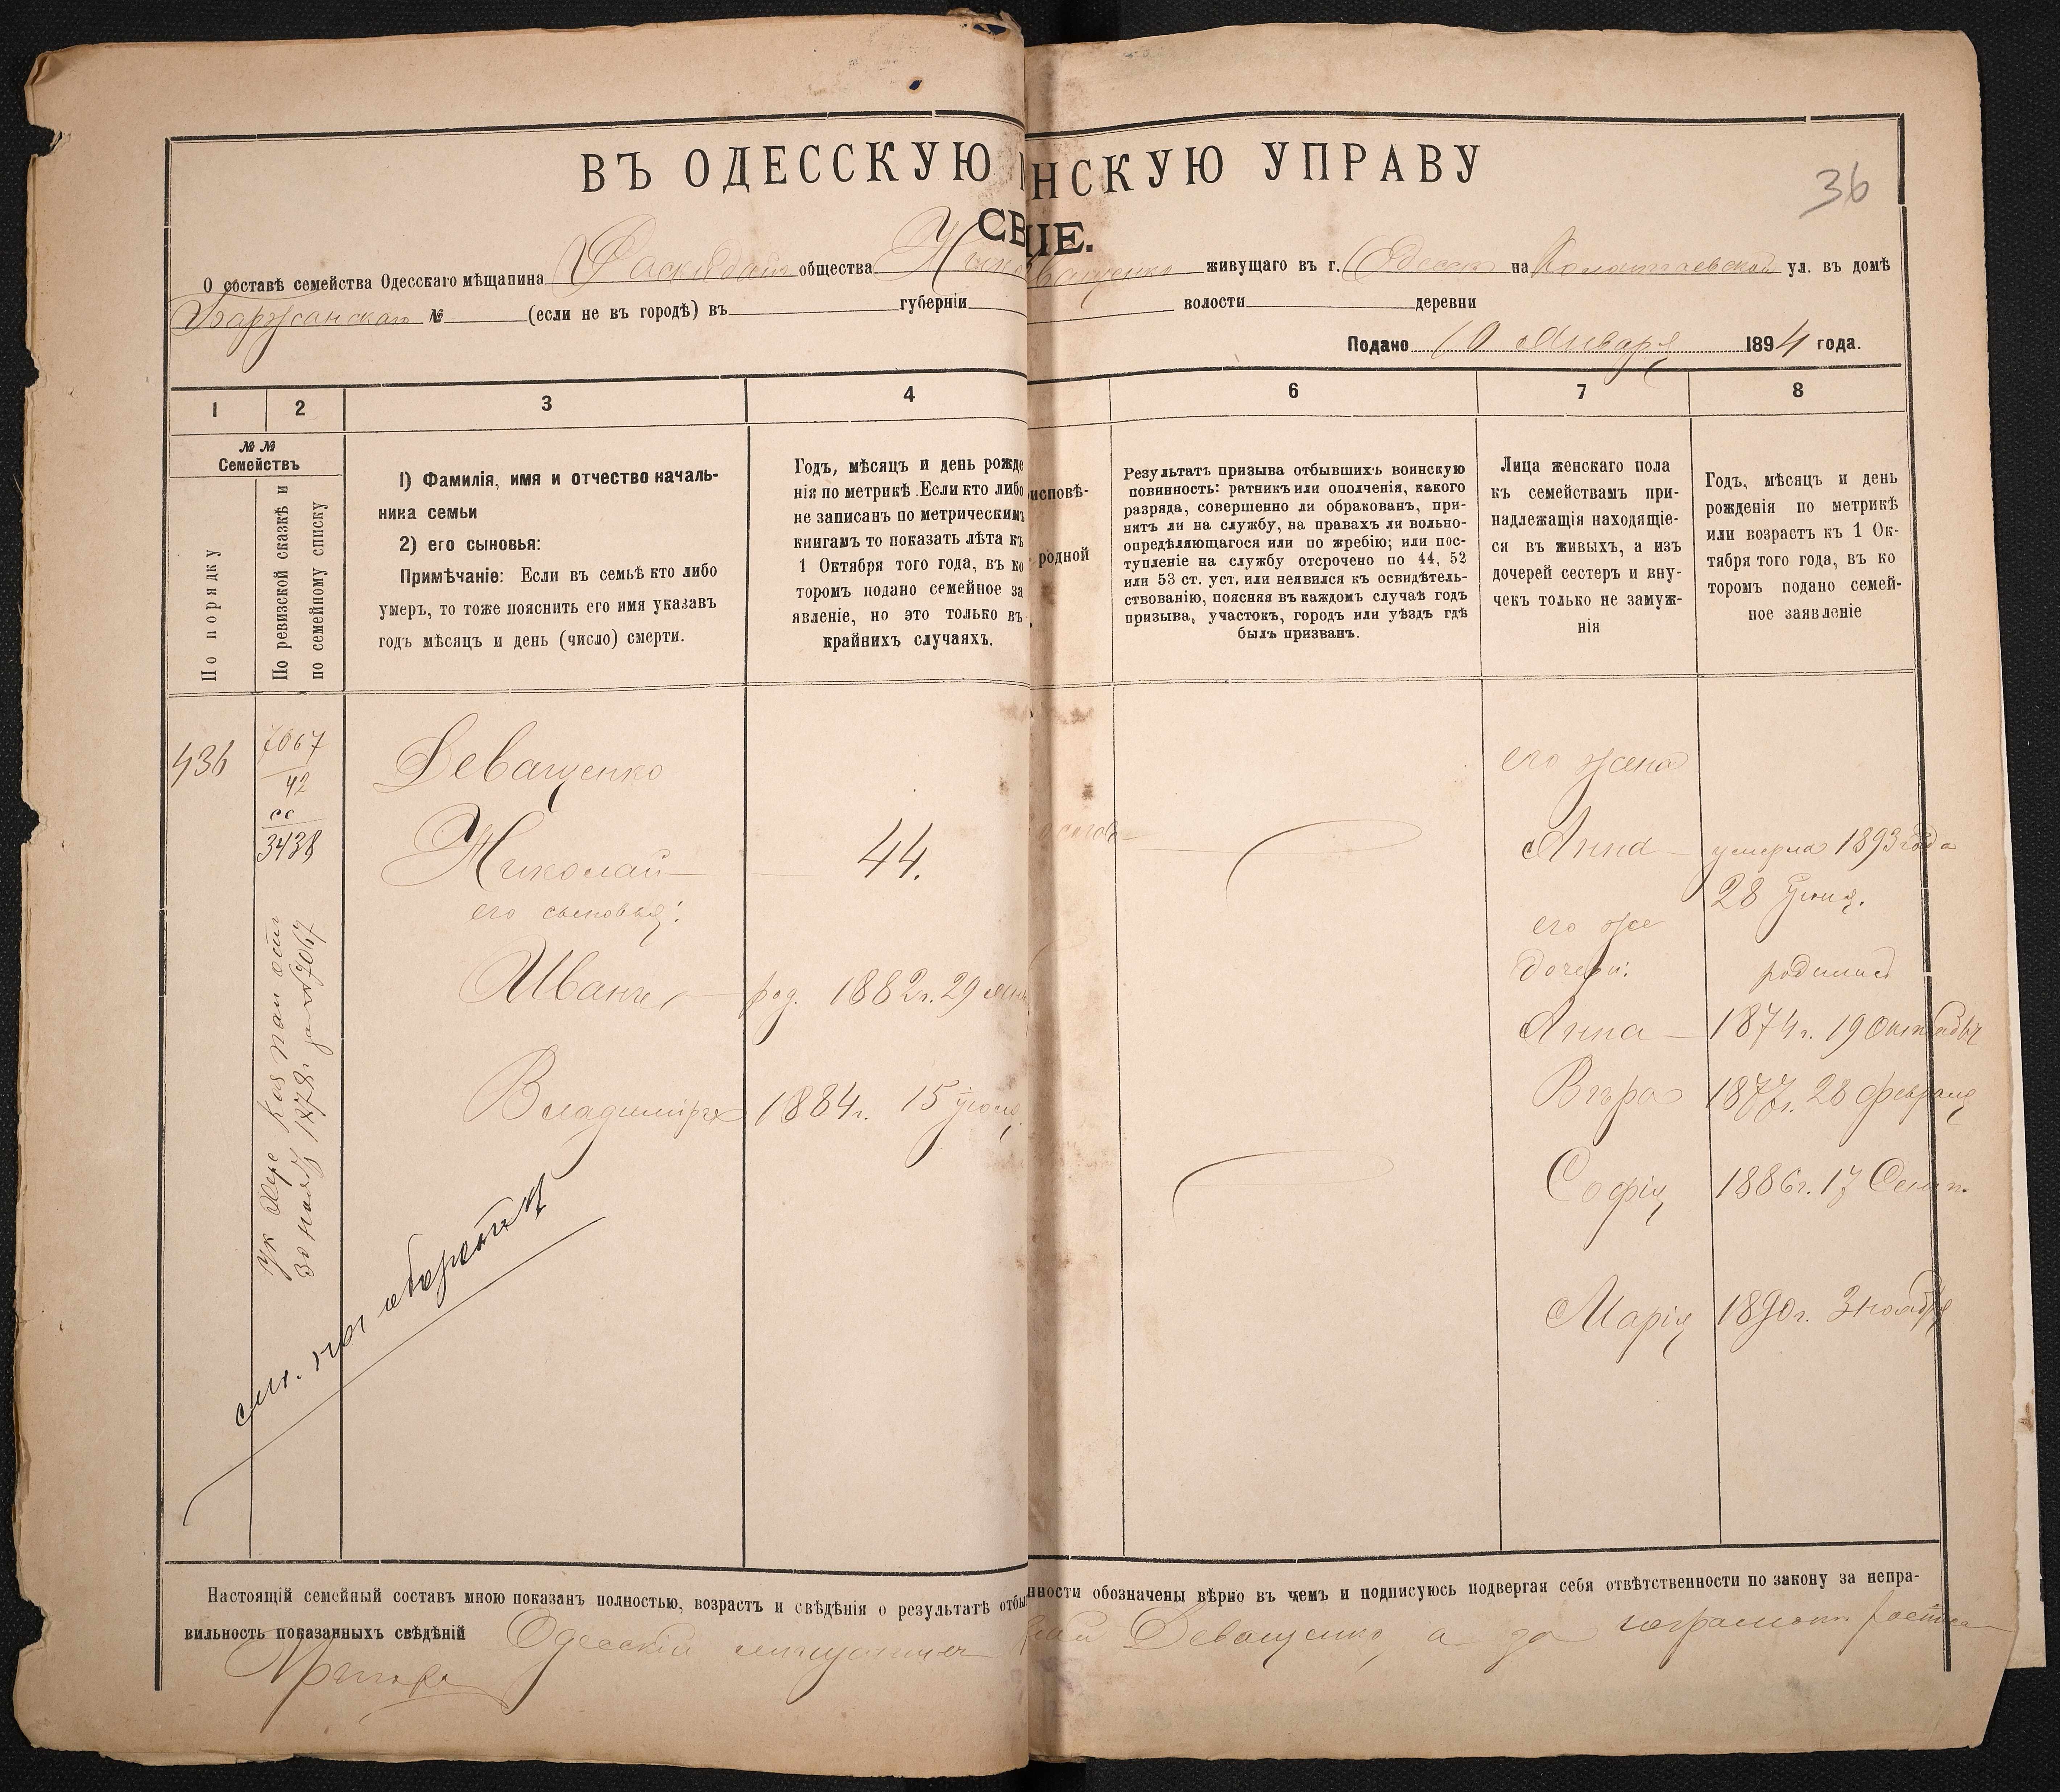 ВЪ ОДЕССКУЮ НСКУЮ УПРАВУ
36
СВ ІЕ.
О составѣ семейства Одесскаго мѣщанина общества живущаго въ г. Одессѣ на ул. въ домѣ
№ (если не въ городѣ) въ губерніи волости деревни
Подано 10 Января 1894 года.
1 2 3 4 6 7 8
№ № Семействъ
По порядку
По ревизской сказкѣ и
по семейному списку
1) Фамилія, имя и отчество началь-
ника семьи
2) его сыновья:
Примѣчаніе: Если въ семьѣ кто либо
умеръ, то тоже пояснить его имя указавъ
годъ мѣсяцъ и день (число) смерти.
Годъ, мѣсяцъ и день рожде
нія по метрикѣ. Если кто либо
не записанъ по метрическимъ
книгамъ то показать лѣта къ
1 Октября того года, въ ко
торомъ подано семейное за
явленіе, но это только въ
крайнихъ случаяхъ.
исповѣ-
родной
Результатъ призыва отбывшихъ воинскую
повинность: ратникъ или ополченія, какого
разряда, совершенно ли обракованъ, при-
нятъ ли на службу, на правахъ ли вольно-
опредѣляющагося или по жребію; или пос-
тупленіе на службу отсрочено по 44, 52
или 53 ст. уст. или неявился къ освидѣтель-
ствованію, поясняя въ каждомъ случаѣ годъ
призыва, участокъ, городъ или уѣздъ гдѣ
былъ призванъ.
Лица женскаго пола
къ семействамъ при-
надлежащія находящіе-
ся въ живыхъ, а изъ
дочерей сестеръ и вну-
чекъ только не замуж-
нія
Годъ, мѣсяцъ и день
рожденія по метрикѣ
или возрастъ къ 1 Ок-
тября того года, въ ко
торомъ подано семей-
ное заявленіе
436
7067
42
сс
3438
30 1878г. за № 7067
Деващенко
Николай 44.
его сыновья:
Иванъ род. 1882г. 29
Владиміръ 1884г. 15
его жена
Анна умерла 1893 года
28 Іюня.
его же
дочери: родились
Анна 1874г. 19 Октября
Вѣра 1877г. 28 февраля
Софія 1886г. 17 Сент.
Марія 1890г. 3 ноября
см. на оборотѣ
Настоящій семейный составъ мною показанъ полностью, возрастъ и свѣдѣнія о результатѣ отбы нности обозначены вѣрно въ чемъ и подписуюсь подвергая себя отвѣтственности по закону за непра-
вильность показанныхъ свѣдѣній Одесскій мѣщанинъ Деващенко, а за